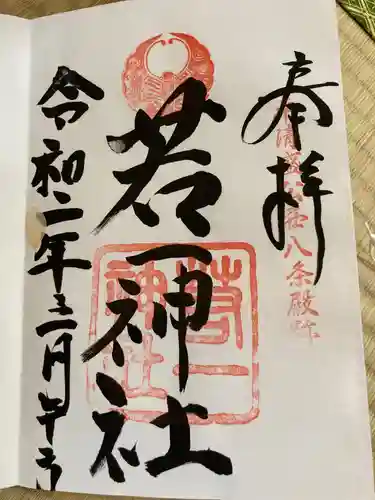 奉拝
清盛公西八条殿跡
若一神社
若一神社
令和二年三月